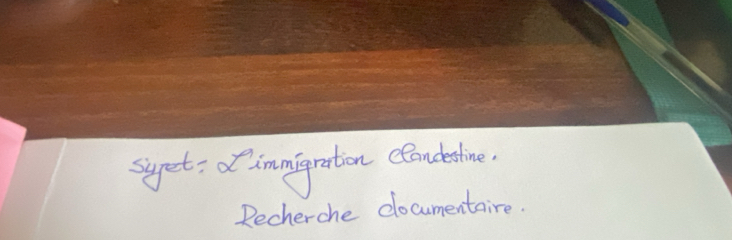 Sujet : L'immigration clandestine.
Recherche documentaire.